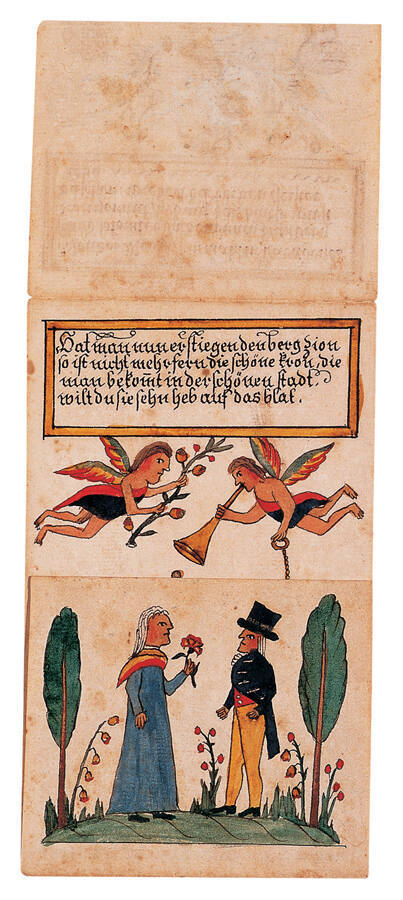 Hat man nun erstiegen den berg Zion
so ist nicht mehr fern die schöne kron, die
man bekomt in der schönen stadt.
wilt du sie sehn heb auf das blat.